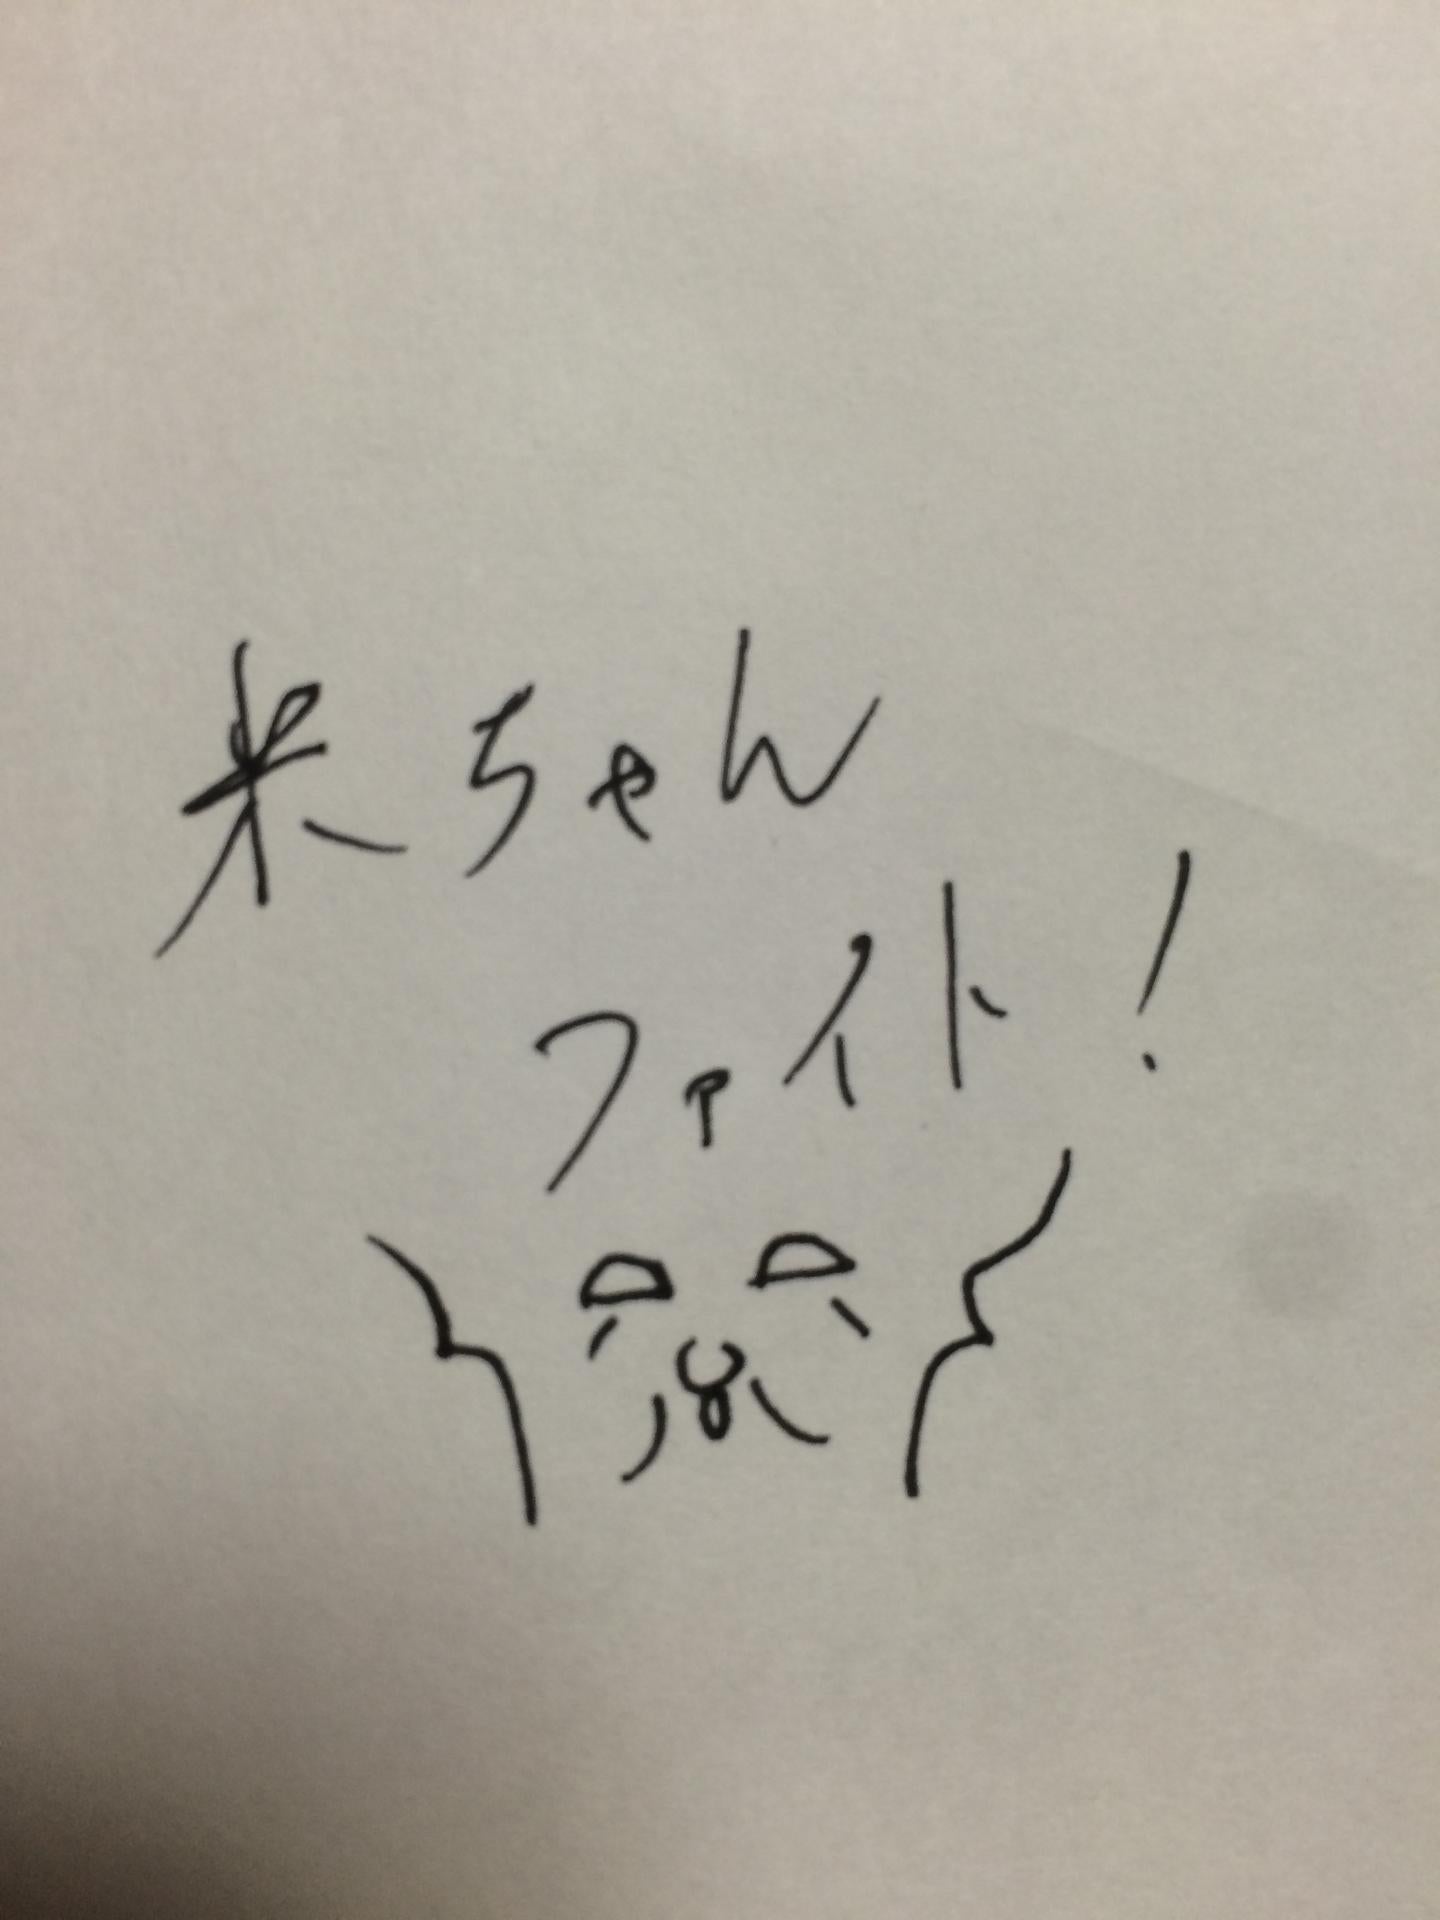 米ちゃん
ファイト!